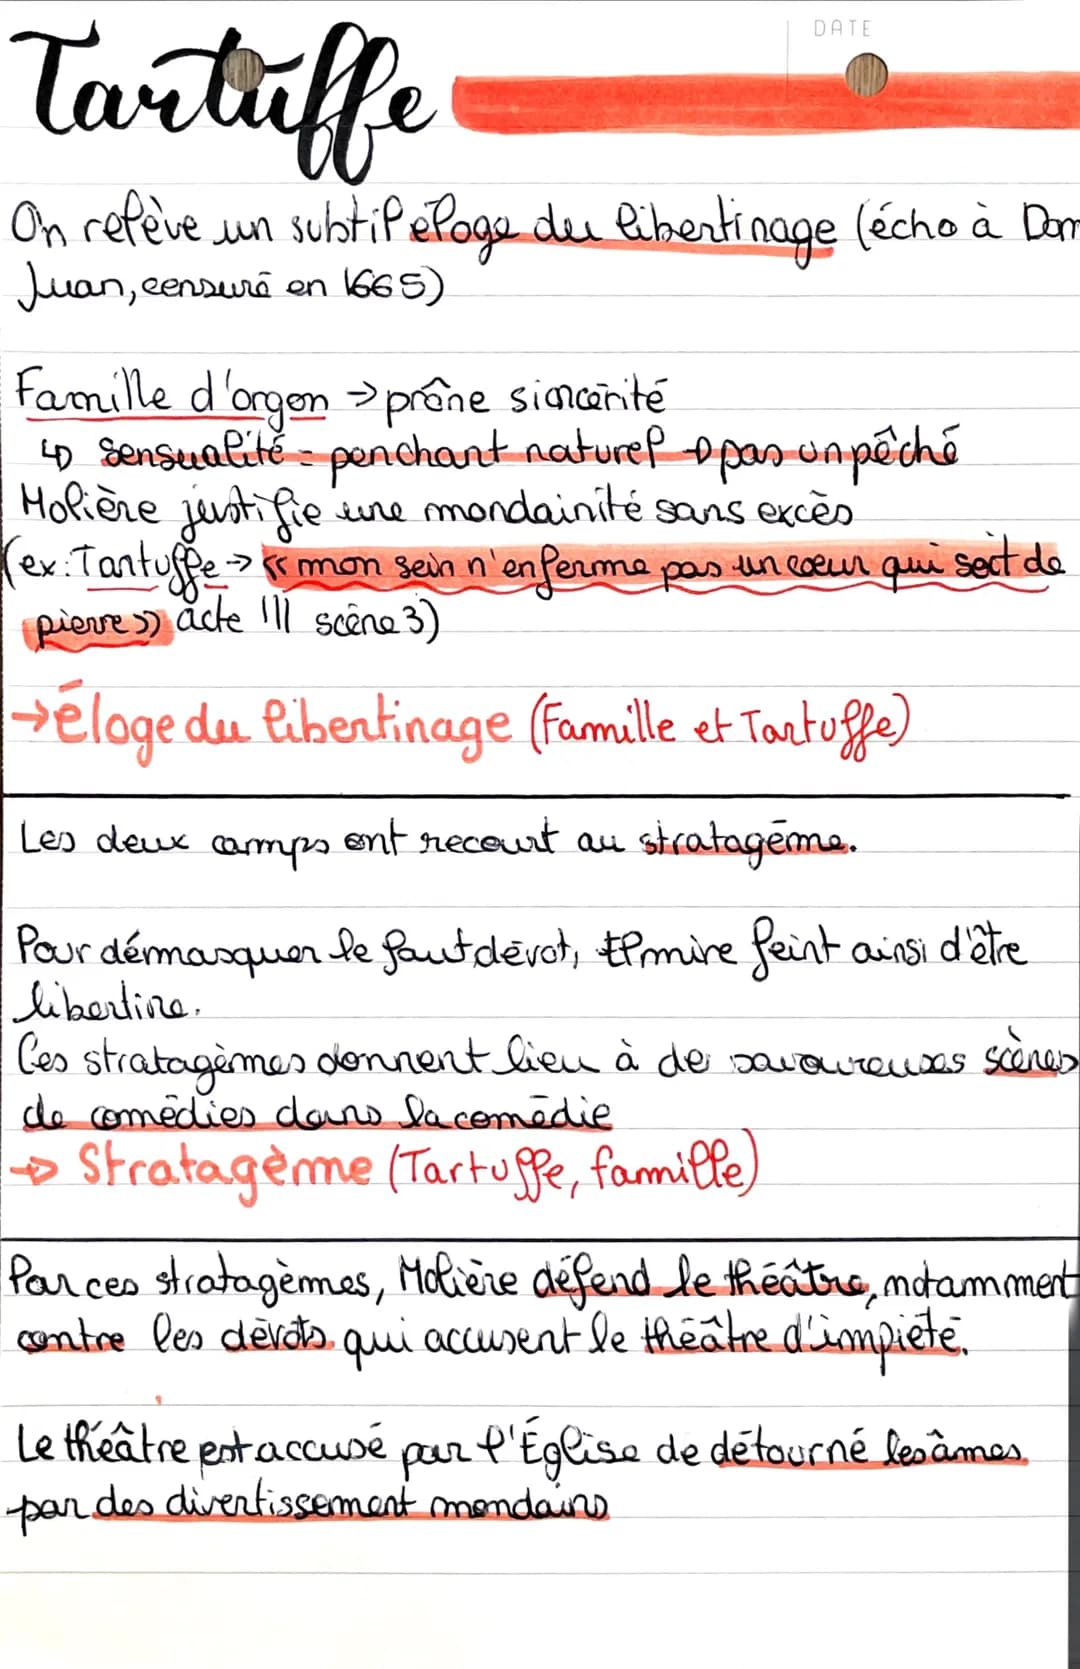 DATE
Tartuffe
On relève un subtil éloge du libertinage (écho à Dom
Juan, censuré en 1665)
Famille d'orgon → prône sincérité
↳ sensualité = penchant naturel → pas un pêché
Molière justifie une mondainité sans excès
(ex: Tartuffe → « mon sein n'enferme pas un coeur qui soit de
pierre » acte III scène 3)
→ éloge du libertinage (Famille et Tartuffe)
Les deux camps ont recourt au stratagème.
Pour démasquer le faut dévot, Elmire feint ainsi d'être
libertine.
Ces stratagèmes donnent lieu à de savoureuses scènes
de comédies dans la comédie
→ Stratagème (Tartuffe, famille)
Par ces stratagèmes, Molière défend le théâtre, notamment
contre les dévots qui accusent le théâtre d'impiété.
Le théâtre est accusé par l'Église de détourné les âmes
par des divertissement mondains